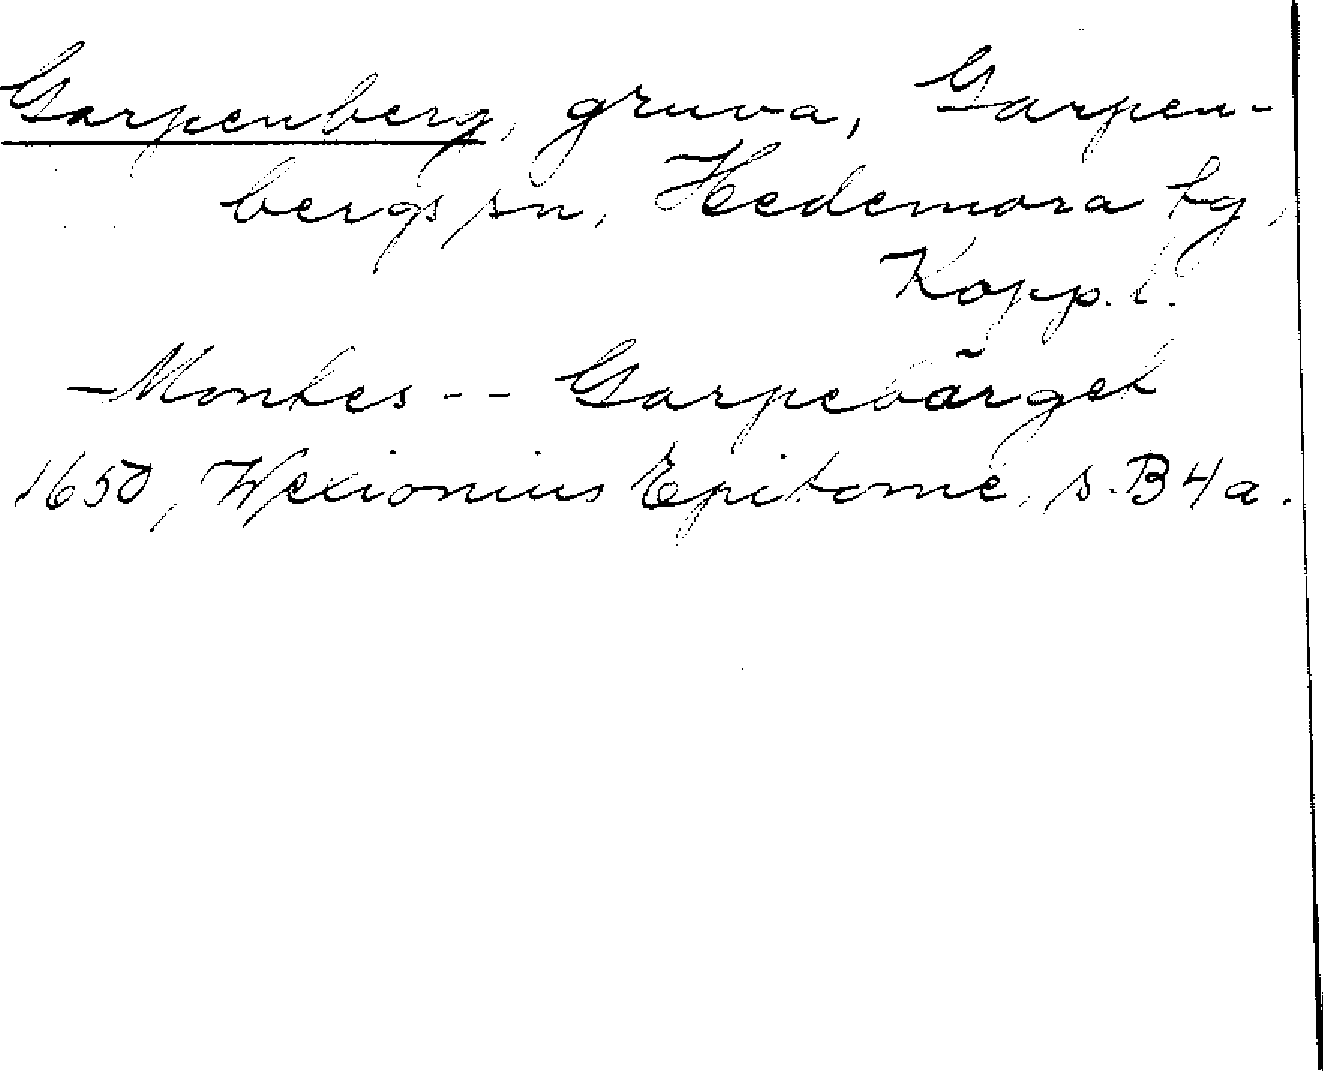 Garpenberg, gruva, Garpen-
bergs sn, Hedemora tg,
Kopp. l.
-Montes -- Garpebärget
1650, Wexionius Epitome, s. B4a.